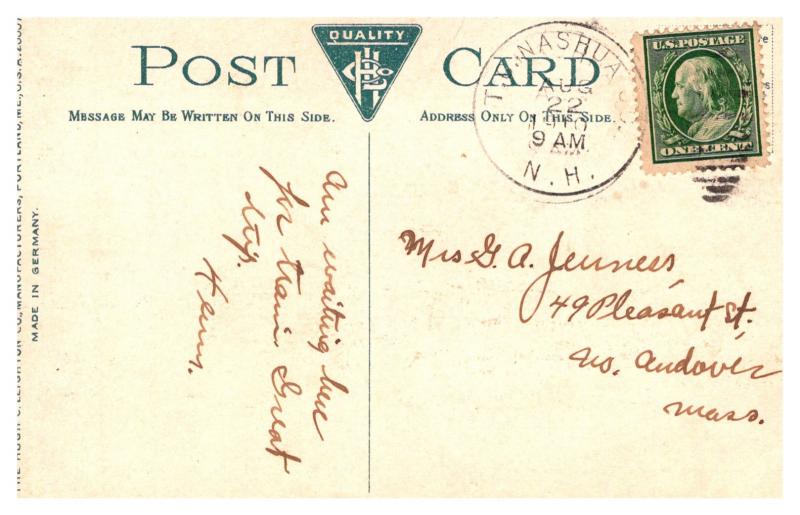 POST CARD
QUALITY
MESSAGE MAY BE WRITTEN ON THIS SIDE.
ADDRESS ONLY ON THIS SIDE.
NASHUA
AUG
22
1910
9 AM
N. H.
U.S. POSTAGE
ONE CENT
Am waiting here
for train Great
day.
Mrs G. A. Jenness,
49 Pleasant St.
No. Andover
Mass.
THE HUGH C. LEIGHTON CO., MANUFACTURERS, PORTLAND, ME., U.S.A.
MADE IN GERMANY.